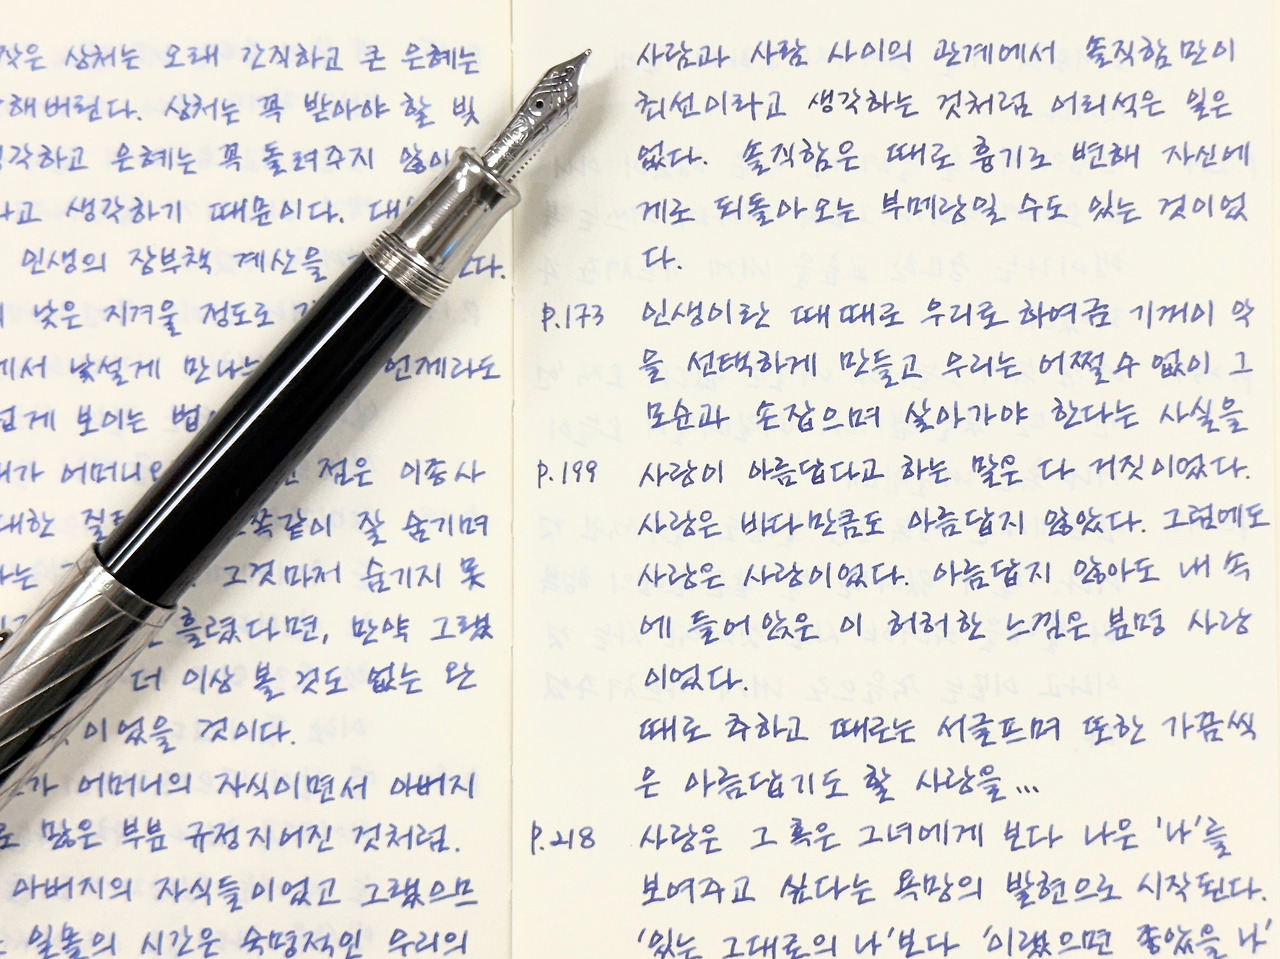 작은 상처는 오래 간직하고 큰 은혜는
해버린다. 상처는 꼭 받아야 할 빚
생각하고 은혜는 꼭 돌려주지 않아
다고 생각하기 때문이다.
인생의 장부책 계산을 한다.
낮은 지겨울 정도로
에서 낯설게 만나는 언제라도
쉽게 보이는 법
내가 어머니와 점은 이종사
대한 질 똑같이 잘 숨기며
그것마저 숨기지 못
흘렸다면, 만약 그랬
더 이상 볼 것도 없는 완
이었을 것이다.
가 어머니의 자식이면서 아버지
로 많은 부분 규정지어진 것처럼.
아버지의 자식들이었고 그랬으므
일몰의 시간은 숙명적인 우리의
사람과 사람 사이의 관계에서 솔직함만이
최선이라고 생각하는 것처럼 어리석은 일은
없다. 솔직함은 때로 흉기로 변해 자신에
게로 되돌아오는 부메랑일 수도 있는 것이었
다.
p.173 인생이란 때때로 우리로 하여금 기꺼이 악
을 선택하게 만들고 우리는 어쩔 수 없이 그
모순과 손잡으며 살아가야 한다는 사실을
p.199 사랑이 아름답다고 하는 말은 다 거짓이었다.
사랑은 바다만큼도 아름답지 않았다. 그럼에도
사랑은 사랑이었다. 아름답지 않아도 내 속
에 들어앉은 이 허허한 느낌은 분명 사랑
이었다.
때로 추하고 때로는 서글프며 또한 가끔씩
은 아름답기도 할 사랑을...
p.218 사랑은 그 혹은 그녀에게 보다 나은 '나'를
보여주고 싶다는 욕망의 발현으로 시작된다.
'있는 그대로의 나'보다 '이랬으면 좋았을 나'